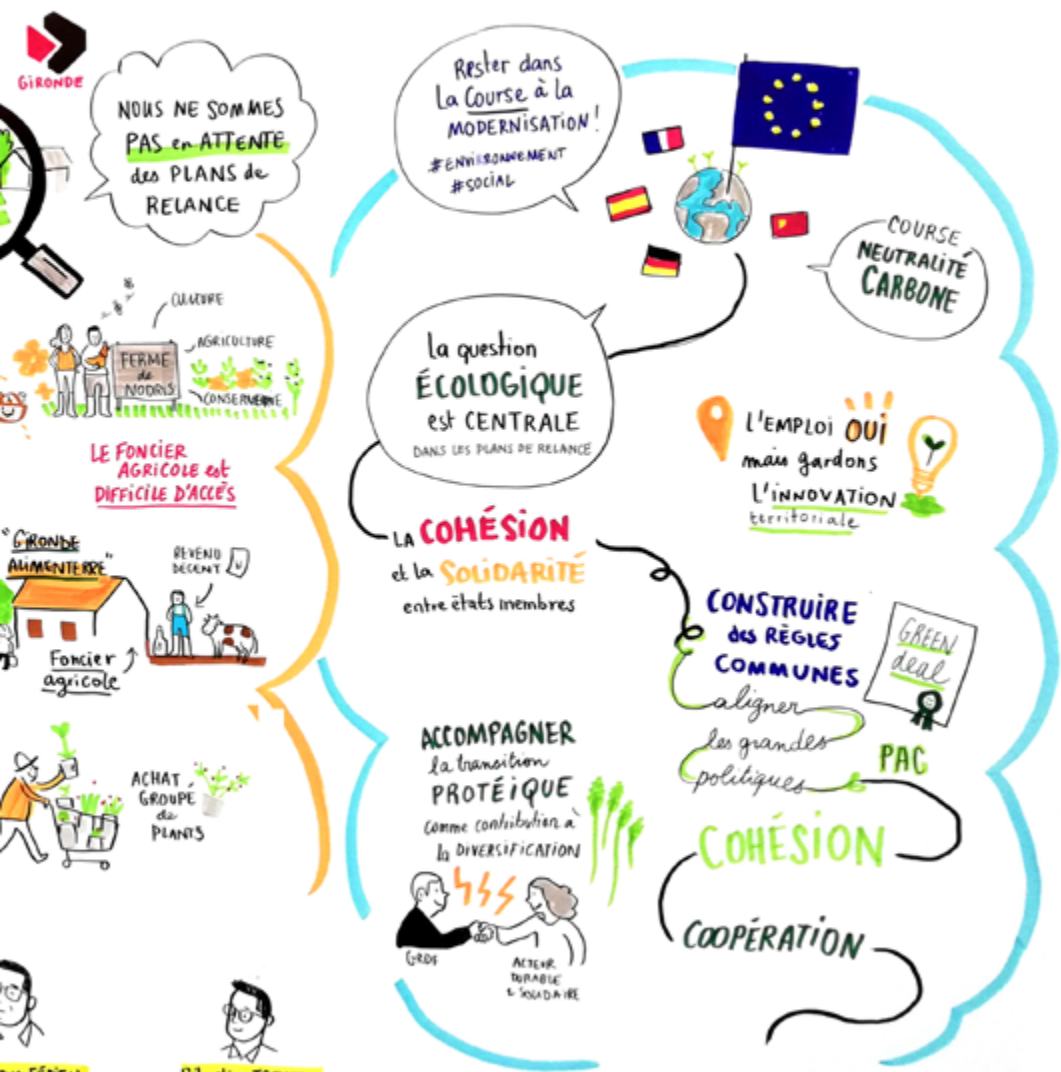 GiRONDE
NOUS NE SOMMES
PAS en ATTENTE
des PLANS de
RELANCE
CULTURE
AGRICULTURE
FERME
de
NODRIS
CONSERVERIE
LE FONCIER
AGRICOLE est
DIFFICILE D'ACCÈS
"GIRONDE
ALIMENTERRE"
REVENU
DÉCENT
Foncier
agricole
ACHAT
GROUPÉ
de
PLANTS
Rester dans
la Course à la
MODERNISATION !
#ENVIRONNEMENT
#SOCIAL
COURSE
NEUTRALITÉ
CARBONE
la question
ÉCOLOGIQUE
est CENTRALE
DANS LES PLANS DE RELANCE
L'EMPLOI OUI
mais gardons
L'INNOVATION
territoriale
LA COHÉSION
et la SOLIDARITÉ
entre états membres
CONSTRUIRE
des RÈGLES
COMMUNES
GREEN
deal
aligner
les grandes
politiques
PAC
COHÉSION
COOPÉRATION
ACCOMPAGNER
la transition
PROTÉIQUE
comme contribution à
la DIVERSIFICATION
GRDF
ACTEUR
DURABLE
& SOLIDAIRE